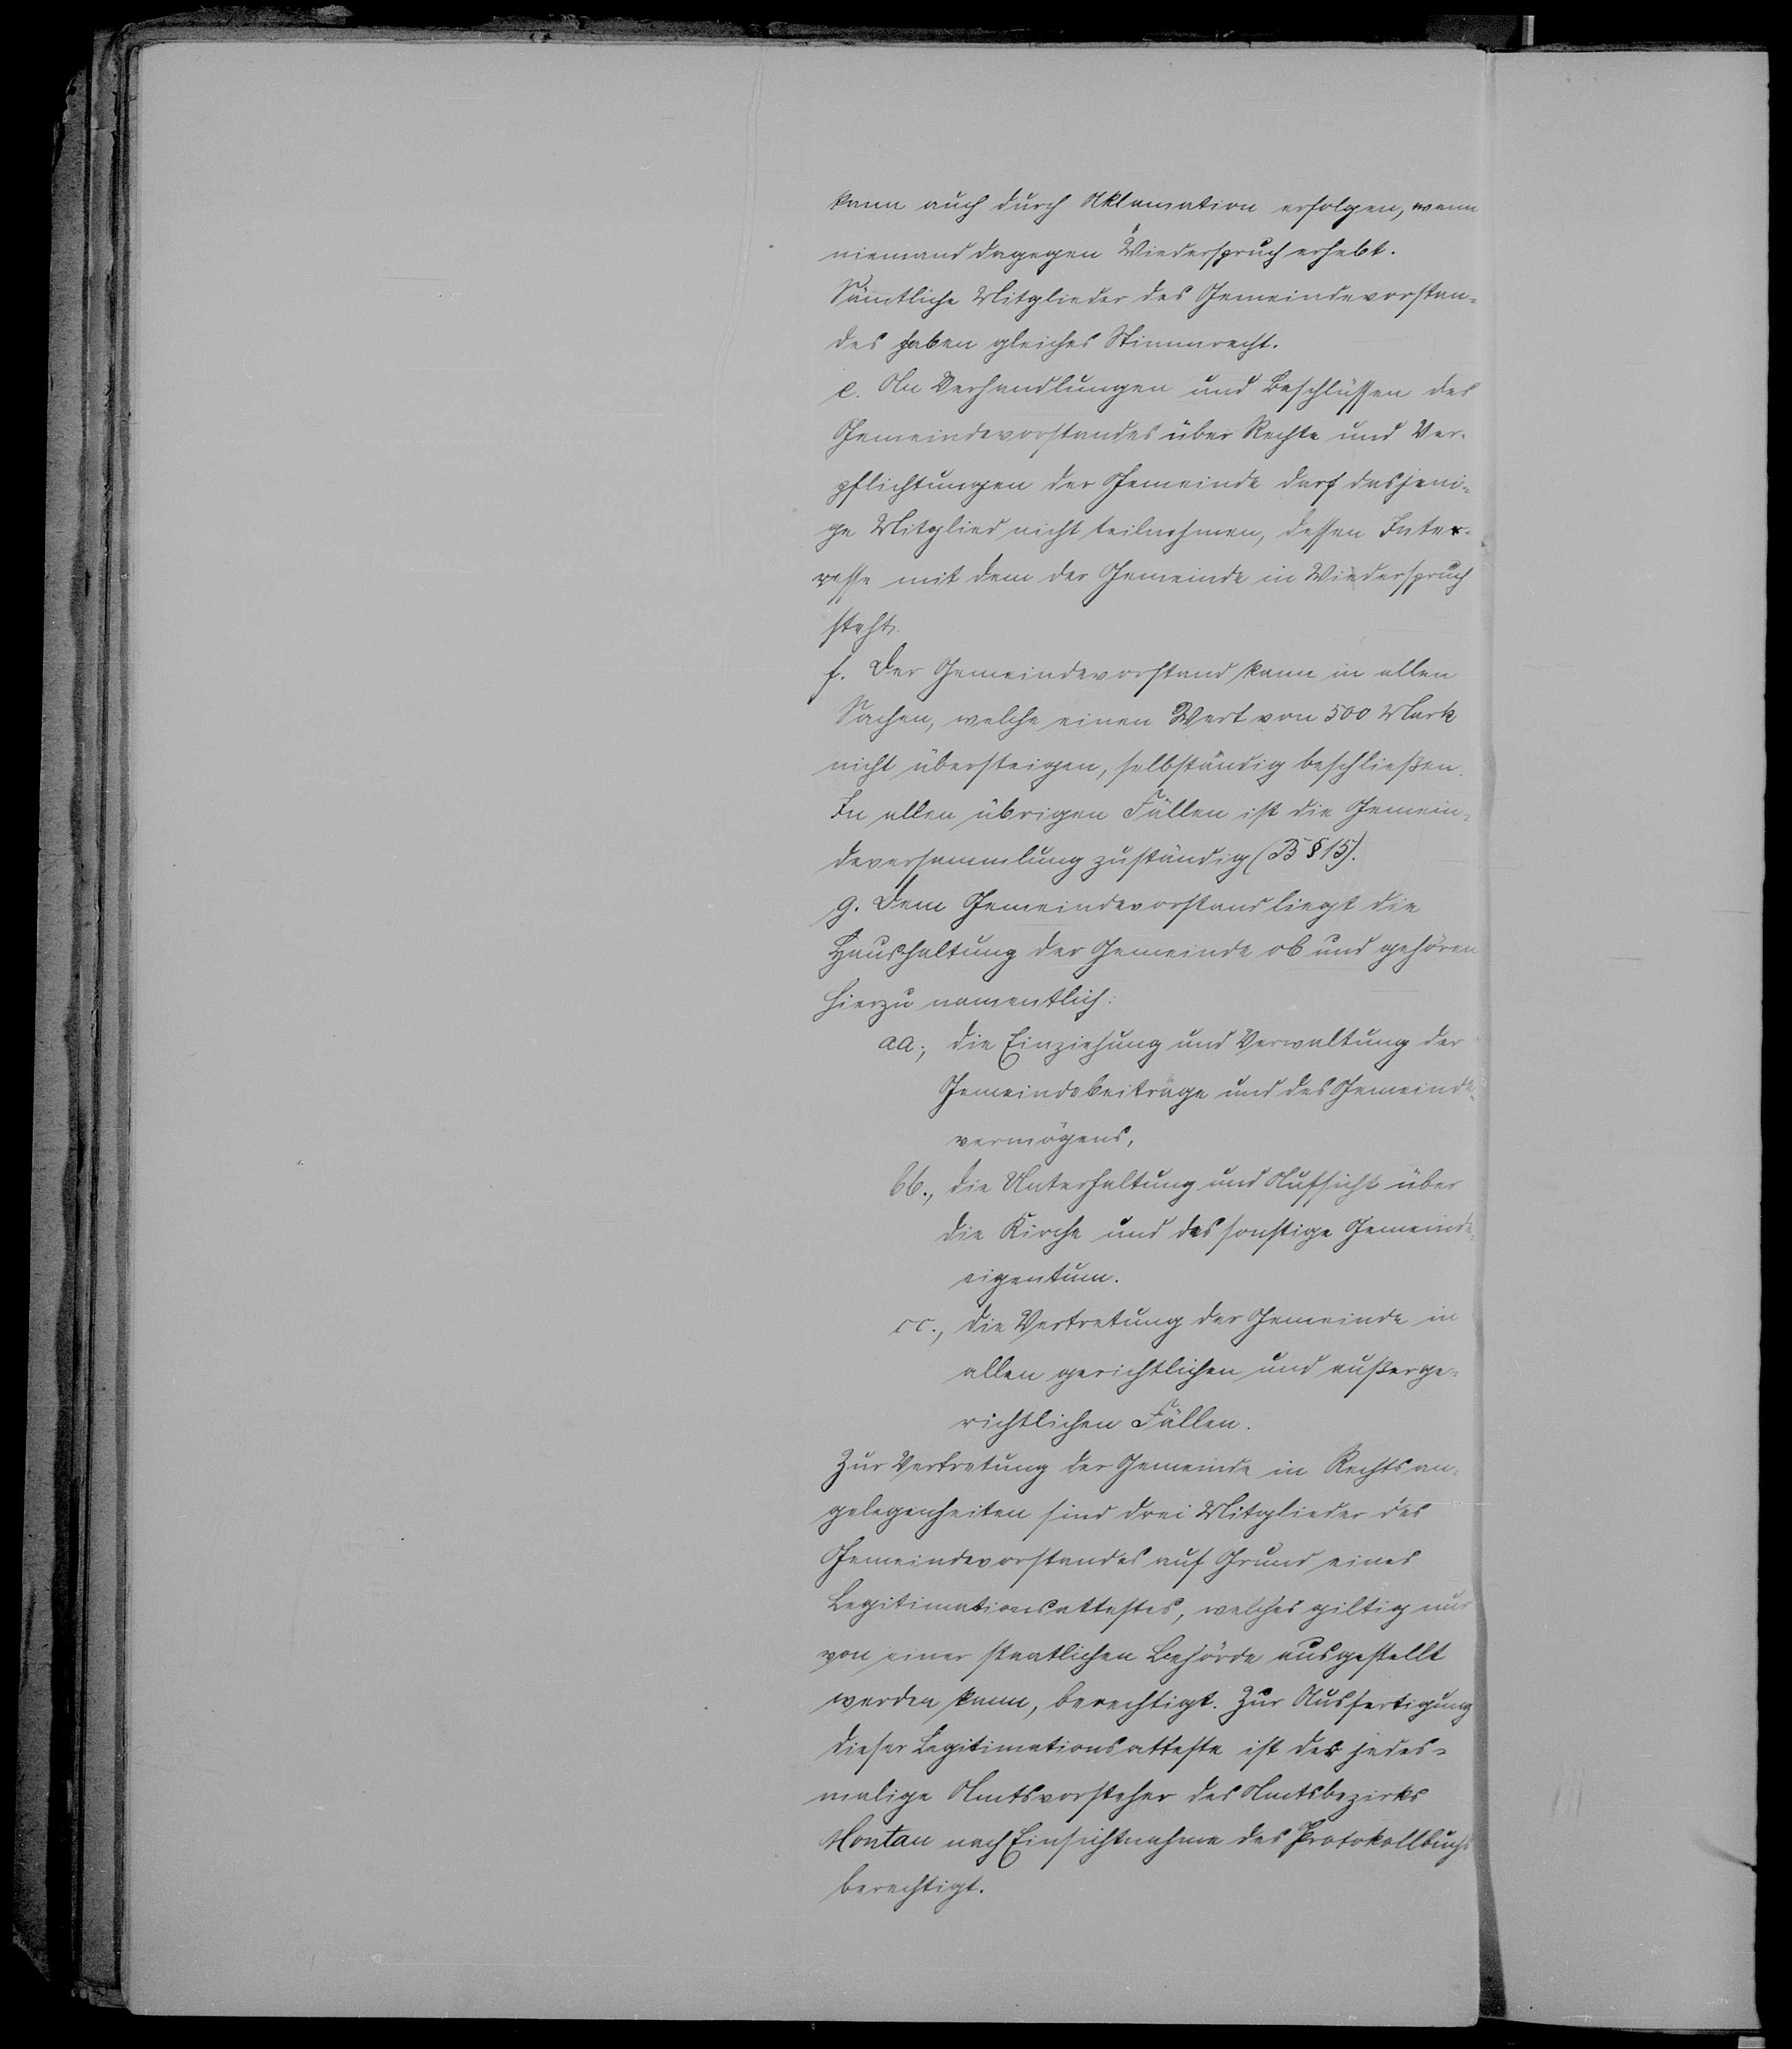 kann auch durch Aklamation erfolgen, wenn
niemand dagegen Wiederspruch erhebt.
Sämtliche Mitglieder des Gemeindevorstan-
des haben gleiches Stimmrecht.
e. An Verhandlungen und Beschlüssen des
Gemeindevorstandes über Rechte und Ver-
pflichtungen der Gemeinde darf dasjeni-
ge Mitglied nicht teilnehmen, dessen Inte-
resse mit dem der Gemeinde in Wiederspruch
steht.
f. Der Gemeindevorstand kann in allen
Sachen, welche einen Wert von 500 Mark
nicht übersteigen, selbständig beschließen.
In allen übrigen Fällen ist die Gemein-
deversammlung zuständig (B § 15).
g. Dem Gemeindevorstand liegt die
Haushaltung der Gemeinde ob und gehören
hierzu namentlich:
aa., die Einziehung und Verwaltung der
Gemeindebeiträge und des Gemeinde-
vermögens,
bb., die Unterhaltung und Aufsicht über
die Kirche und das sonstige Gemeinde-
eigentum.
cc., die Vertretung der Gemeinde in
allen gerichtlichen und außerge-
richtlichen Fällen.
Zur Vertretung der Gemeinde in Rechtsan-
gelegenheiten sind drei Mitglieder des
Gemeindevorstandes auf Grund eines
Legitimationsattestes, welches giltig nur
von einer staatlichen Behörde ausgestellt
werden kann, berechtigt. Zur Ausfertigung
dieser Legitimationsatteste ist der jedes-
malige Amtsvorsteher des Amtsbezirks
Montau nach Einsichtnahme des Protokollbuchs
berechtigt.